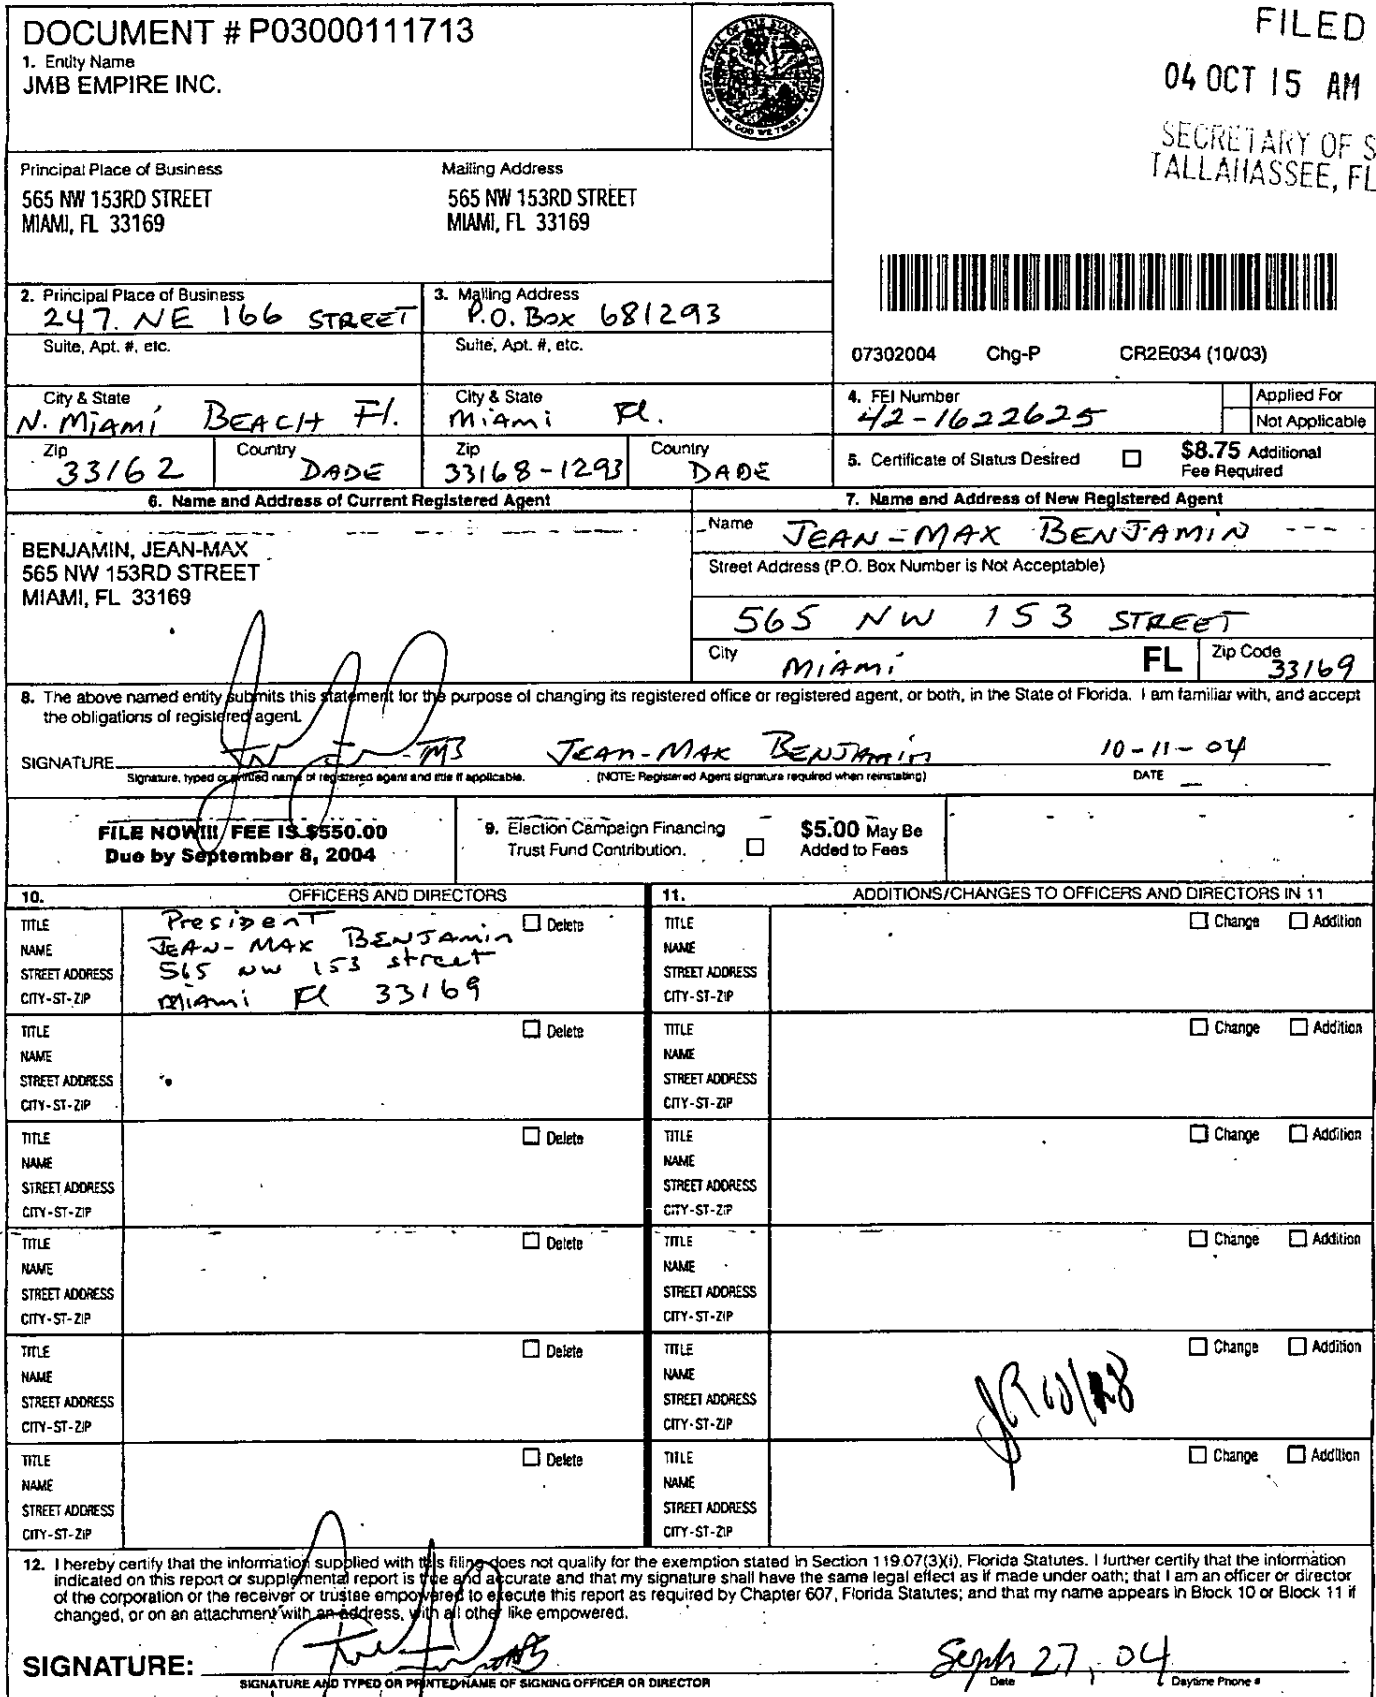 DOCUMENT # P03000111713
1. Entity Name
JMB EMPIRE INC.
GREAT SEAL OF THE STATE OF FLORIDA
IN GOD WE TRUST
FILED
04 OCT 15 AM
SECRETARY OF S
TALLAHASSEE, FL
Principal Place of Business
565 NW 153RD STREET
MIAMI, FL 33169
Mailing Address
565 NW 153RD STREET
MIAMI, FL 33169
2. Principal Place of Business
247. NE 166 STREET
3. Mailing Address
P.O. Box 681293
Suite, Apt. #, etc.
Suite, Apt. #, etc.
07302004 Chg-P CR2E034 (10/03)
City & State
N. Miami BEACH Fl.
City & State
Miami Fl.
4. FEI Number
42-1622625
Applied For
Not Applicable
Zip
33162
Country
DADE
Zip
33168-1293
Country
DADE
5. Certificate of Status Desired
$8.75 Additional
Fee Required
6. Name and Address of Current Registered Agent
BENJAMIN, JEAN-MAX
565 NW 153RD STREET
MIAMI, FL 33169
7. Name and Address of New Registered Agent
Name JEAN-MAX BENJAMIN
Street Address (P.O. Box Number is Not Acceptable)
565 NW 153 STREET
City Miami FL Zip Code 33169
8. The above named entity submits this statement for the purpose of changing its registered office or registered agent, or both, in the State of Florida. I am familiar with, and accept
the obligations of registered agent.
SIGNATURE JEAN-MAX BENJAMIN 10-11-04
Signature, typed or printed name of registered agent and title if applicable. (NOTE: Registered Agent signature required when reinstating) DATE
FILE NOW!!! FEE IS $550.00
Due by September 8, 2004
9. Election Campaign Financing
Trust Fund Contribution.
$5.00 May Be
Added to Fees
10. OFFICERS AND DIRECTORS
11. ADDITIONS/CHANGES TO OFFICERS AND DIRECTORS IN 11
TITLE President Delete
NAME JEAN-MAX BENJAMIN
STREET ADDRESS 565 NW 153 street
CITY-ST-ZIP Miami Fl 33169
TITLE Change Addition
NAME
STREET ADDRESS
CITY-ST-ZIP
TITLE Delete
NAME
STREET ADDRESS
CITY-ST-ZIP
TITLE Change Addition
NAME
STREET ADDRESS
CITY-ST-ZIP
TITLE Delete
NAME
STREET ADDRESS
CITY-ST-ZIP
TITLE Change Addition
NAME
STREET ADDRESS
CITY-ST-ZIP
TITLE Delete
NAME
STREET ADDRESS
CITY-ST-ZIP
TITLE Change Addition
NAME
STREET ADDRESS
CITY-ST-ZIP
TITLE Delete
NAME
STREET ADDRESS
CITY-ST-ZIP
TITLE Change Addition
NAME
STREET ADDRESS
CITY-ST-ZIP
TITLE Delete
NAME
STREET ADDRESS
CITY-ST-ZIP
TITLE Change Addition
NAME
STREET ADDRESS
CITY-ST-ZIP
12. I hereby certify that the information supplied with this filing does not qualify for the exemption stated in Section 119.07(3)(i), Florida Statutes. I further certify that the information
indicated on this report or supplemental report is true and accurate and that my signature shall have the same legal effect as if made under oath; that I am an officer or director
of the corporation or the receiver or trustee empowered to execute this report as required by Chapter 607, Florida Statutes; and that my name appears in Block 10 or Block 11 if
changed, or on an attachment with an address, with all other like empowered.
SIGNATURE: 27, 04
SIGNATURE AND TYPED OR PRINTED NAME OF SIGNING OFFICER OR DIRECTOR Date Daytime Phone #